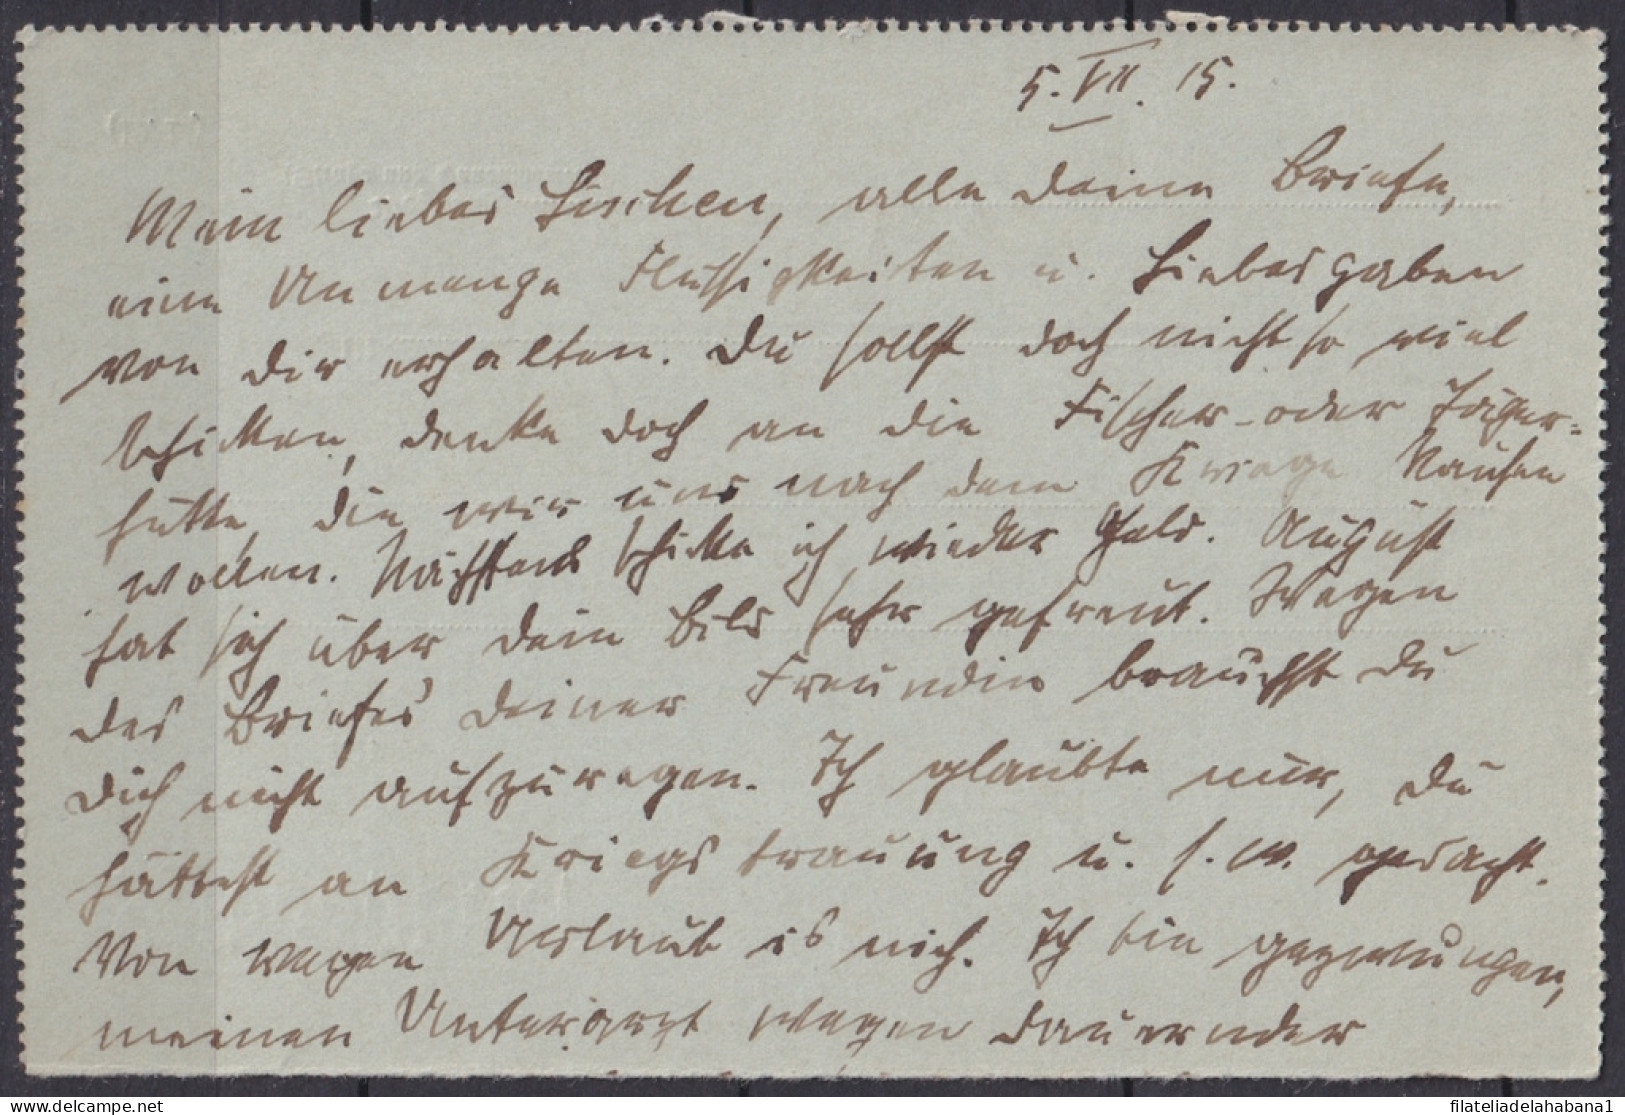 5. VII. 15.
Mein liebes Lieschen, alle deine Briefe,
eine Unmenge Flüssigkeiten u. Liebesgaben
von dir erhalten. Du sollst doch nicht so viel
schicken, denke doch an die Fischer- oder Jäger-
hütte, die wir uns nach dem Kriege kaufen
wollen. Nächstens schicke ich wieder Geld. August
hat sich über dein Bild sehr gefreut. Wegen
des Briefes deiner Freundin brauchst Du
Dich nicht aufzuregen. Ich glaubte nur, Du
hättest an Kriegstrauung u. s. w. gedacht.
Von wegen Urlaub is nich. Ich bin gezwungen,
meinen Unterarzt wegen dauernder
filateliadelahabana1
the best online collectibles marketplace